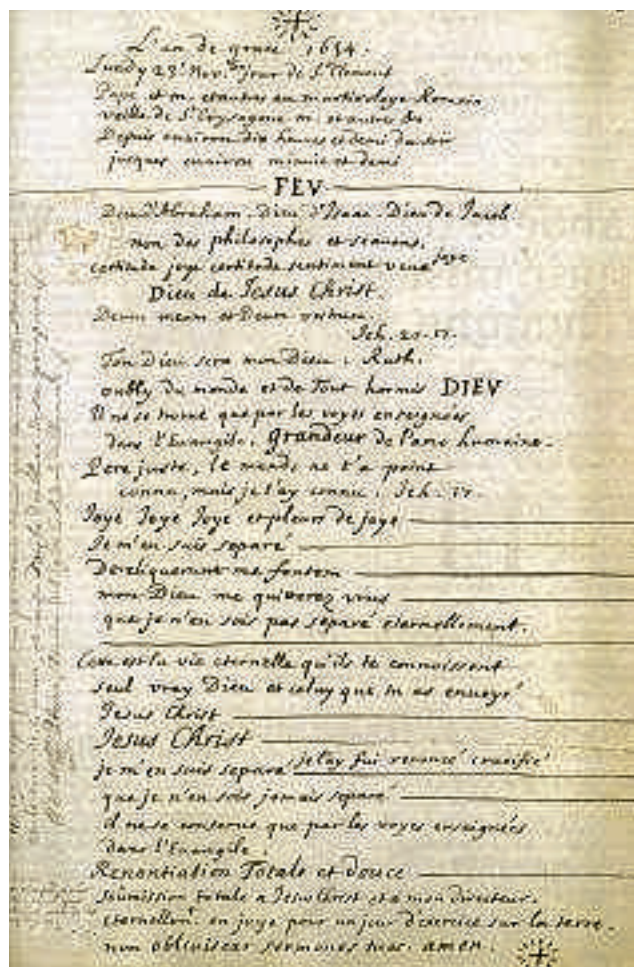 L'an de grace 1654.
Lundy 23e Nov.bre Jour de St Clement
Pape et m. et autres au martirologe Romain
veille de St Crysogone m. et autres &c
Depuis environ dix heures et demi du soir
jusques environ minuit et demi
FEV
Dieu d'Abraham. Dieu d'Isaac. Dieu de Jacob
non des philosophes et scavans.
certitude joye certitude sentiment veue joye
Dieu de Jesus Christ.
Deum meum et Deum vestrum.
Jeh. 20. 17.
Ton Dieu sera mon Dieu. Ruth.
oubly du monde et de Tout hormis DIEV
Il ne se trouve que par les voyes enseignées
dans l'Evangile. Grandeur de l'ame humaine.
Pere juste, le monde ne t'a point
connu, mais je t'ay connu. Jeh. 17.
Joye Joye Joye et pleurs de joye
Je m'en suis separé
Dereliquerunt me fontem
mon Dieu me quitterez vous
que je n'en sois pas separé eternellement.
Cette est la vie eternelle qu'ils te connoissent
seul vray Dieu et celuy que tu as envoyé
Jesus Christ
Jesus Christ
je m'en suis separé je l'ay fui renoncé crucifié
que je n'en sois jamais separé
il ne se conserve que par les voyes enseignées
dans l'Evangile.
Renontiation Totale et douce
soumission totale a Jesus Christ et a mon directeur.
eternellem.t en joye pour un jour d'exercice sur la terre.
non obliviscar sermones tuos. amen.